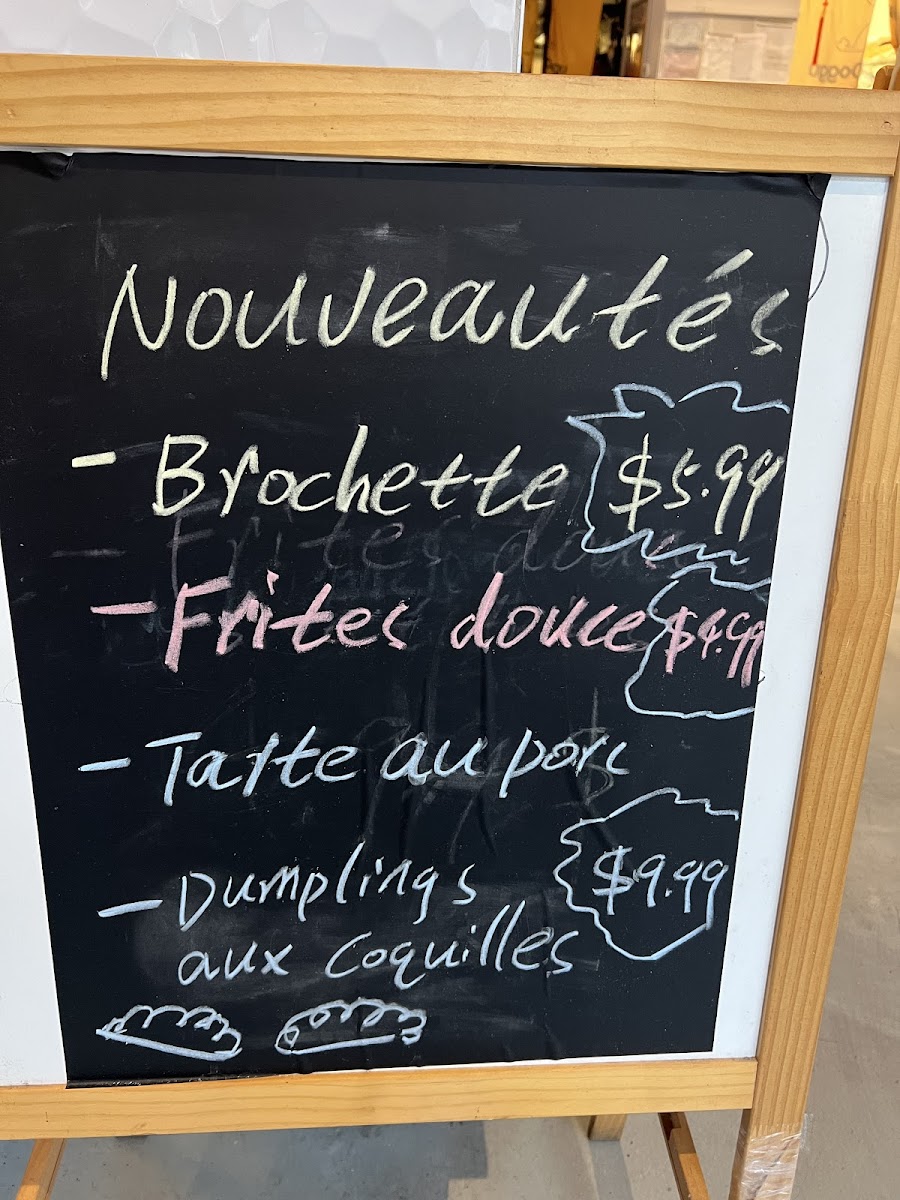 Nouveautés
- Brochette $5.99
- Frites douce $4.99
- Tarte au porc
- Dumplings $9.99
aux coquilles